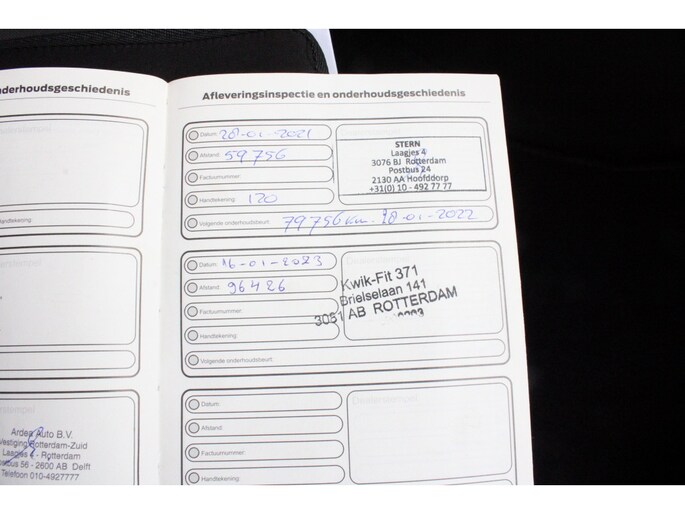 nderhoudsgeschiedenis
Handtekening:
Ardea Auto B.V.
Vestiging Rotterdam-Zuid
Laagjes 4 - Rotterdam
Postbus 56 - 2600 AB Delft
Telefoon 010-4927777
Afleveringsinspectie en onderhoudsgeschiedenis
Datum: 28-01-2021
Afstand: 59756
Factuurnummer:
Handtekening: 120
Volgende onderhoudsbeurt: 79756 km. 28-01-2022
STERN
Laagjes 4
3076 BJ Rotterdam
Postbus 24
2130 AA Hoofddorp
+31(0) 10 - 492 77 77
Datum: 16-01-2023
Afstand: 96426
Factuurnummer:
Handtekening:
Volgende onderhoudsbeurt:
Kwik-Fit 371
Brielselaan 141
3081 AB ROTTERDAM
Datum:
Afstand:
Factuurnummer:
Handtekening: